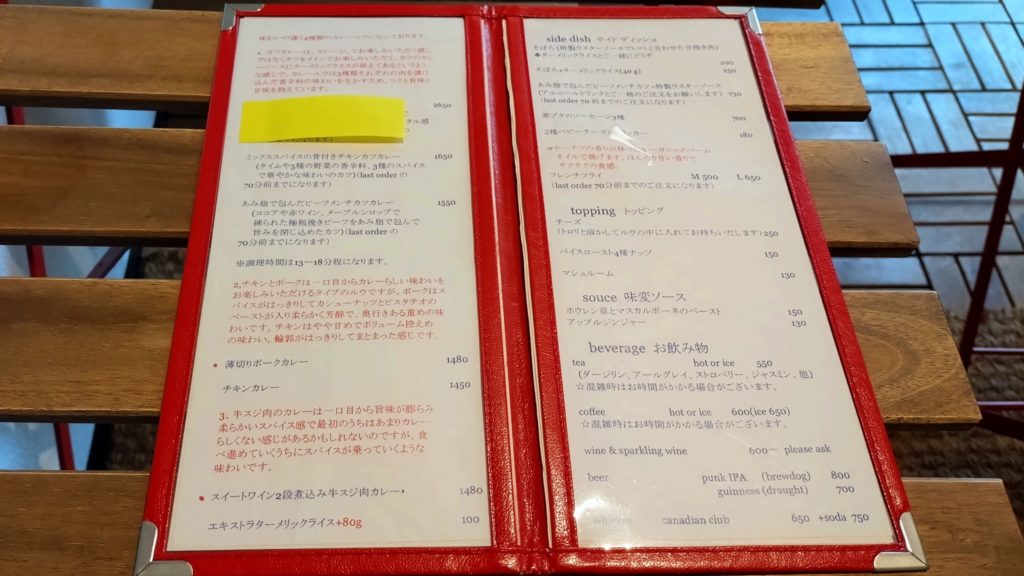 味わいの違う4種類のカレールウになっております。
1. カツカレーは、カレーとしてお楽しみいただく感じ
ではなくカツをメインでお楽しみいただく、カツのカレ
ーソースにターメリックライスが添えてあるというよう
な感じで、カレールウは3種類それぞれの肉を漬け
込んだ香辛料の味わいを生かすため、コクと旨味と
甘味を抑えています。
2650
タル感
になります)
ミックススパイスの骨付きチキンカツカレー 1650
(タイムや5種の野菜の香辛料、3種のスパイス
で華やかな味わいのカツ)(last order の
70分前までになります)
あみ脂で包んだビーフメンチカツカレー 1550
(ココアや赤ワイン、メープルシロップで
練られた極粗挽きビーフをあみ脂で包んで
旨みを閉じ込めたカツ)(last order の
70分前までになります)
※調理時間は13ー18分程になります。
2,チキンとポークは一口目からカレーらしい味わい
をお楽しみいただけるタイプのルウですが、ポークはス
パイスがはっきりしてカシューナッツとピスタチオの
ペーストが入り柔らかく芳醇で、奥行きある重めの味
わいです。チキンはやや甘めでボリューム控えめ
の味わい、輪郭がはっきりしてまとまった感じです。
薄切りポークカレー 1480
チキンカレー 1450
3、牛スジ肉のカレーは一口目から旨味が膨らみ
柔らかいスパイス感で最初のうちはあまりカレー
らしくない感じがあるかもしれないのですが、食
べ進めていくうちにスパイスが乗っていくような
味わいです。
スイートワイン2段煮込み牛スジ肉カレー・ 1480
エキストラターメリックライス+80g 100
side dish サイド ディッシュ
そぼろ (特製ウスターソースでトマトと合わせた合挽き肉)
◆ターメリックライスとご一緒にどうぞ
200
そぼろ+ターメリックライス(40 g) 250
あみ脂で包んだビーフメンチカツ+特製ウスターソース
(アルコールドリンクとご一緒のご注文をお願いします) 730
(last order 70 前までのご注文になります)
薬ブタのソーセージ3種 700
2種ベビーチーズ ッカー 180
オイルで揚げます。ほんのり甘い香りで
サクサクの食感。
フレンチフライ M 500 L 650
(last order 70分前までのご注文になります)
topping トッピング
チーズ
(トロリと溶かしてルウの中に入れてお持ちいたします) 250
パイスロースト4種ナッツ 150
マシュルーム 130
souce 味変ソース
ホウレン草とマスカルポーネのペースト 150
アップルジンジャー 130
beverage お飲み物
tea hot or ice 550
(ダージリン、アールグレイ、ストロベリー、ジャスミン、他)
☆混雑時はお時間がかかる場合がございます。
coffee hot or ice 600(ice 650)
☆混雑時はお時間がかかる場合がございます。
wine & sparkling wine 600～ please ask
beer punk IPA (brewdog) 800
guinness (draught) 700
canadian club 650 +soda 750